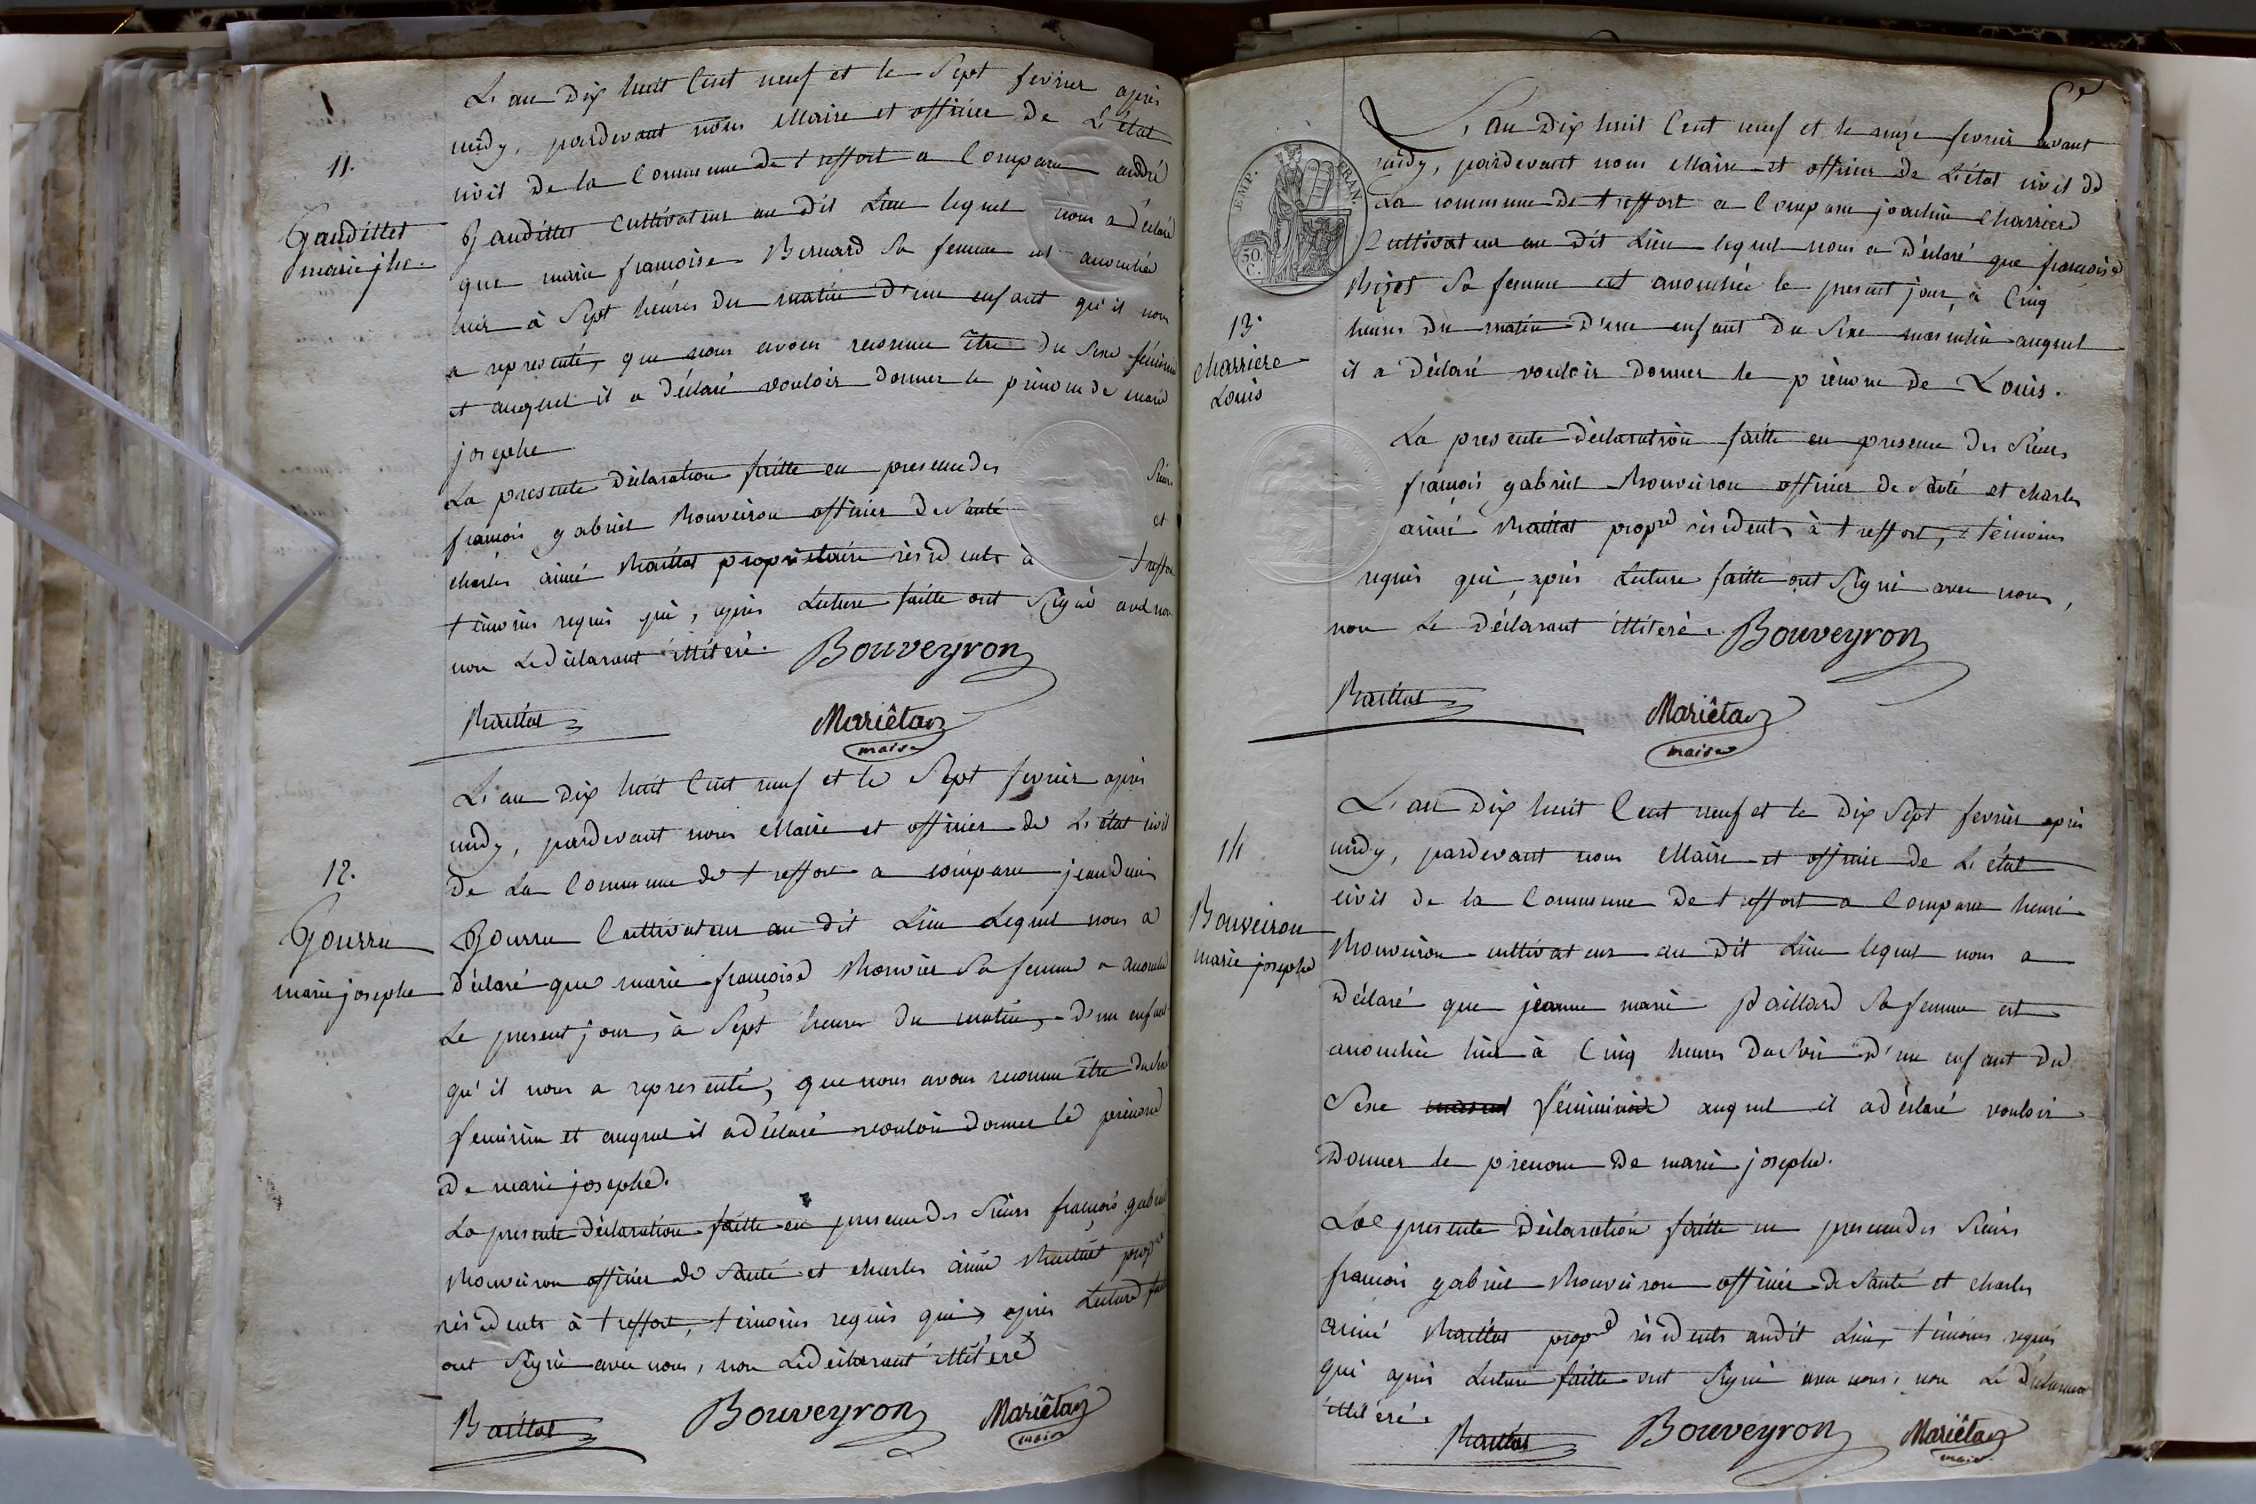 L'an Dix huit Cent neuf et le Sept fevrier après
midy, pardevant nous Maire et officier de L'état
civil de la Commune de treffort a Comparu andré
Gaudillet Cultivateur au dit Lieu lequel nous a déclaré
que marie françoise Bernard Sa femme est accouchée
hier à Sept heures du matin d'un enfant qu'il nous
a representé, que nous avons reconnu être du Sexe féminin
et auquel il a déclaré vouloir donner le prénom de marie
josephe
La presente déclaration faitte en presence des Sieurs
françois gabriel Bouveiron officier de Santé et
charles aimé Baillat propriétaire résidents à treffort
témoins requis qui, après Lecture faitte ont Signé avec nous
non Le déclarant illitéré.
Bouveyron
Baillat
Mariétan
maire
11.
Gaudillet
marie jhe.
L'an Dix huit Cent neuf et le Sept fevrier après
midy, pardevant nous Maire et officier de L'état civil
de La Commune de treffort a comparu jean Denis
Gourru Cultivateur au dit Lieu Lequel nous a
déclaré que marie françoise Bouvier Sa femme a accouché
Le present jour, à Sept heures du matin, d'un enfant
qu'il nous a representé, que nous avons reconnu être du Sexe
feminin et auquel il a déclaré vouloir donner le prénom
de marie josephe.
La presente déclaration faitte en presence des Sieurs françois gabriel
Bouveiron officier de Santé et charles aimé Baillat propre
résidents à treffort, témoins requis qui, après Lecture faitte
ont Signé avec nous, non Le déclarant illitéré
Baillat
Bouveyron
Mariétan
maire
12.
Gourru
marie josephe
L'an Dix huit Cent neuf et le onze fevrier avant
midy, pardevant nous Maire et officier de L'état civil de
La commune de treffort a Comparu joachim Charriere
Cultivateur au dit Lieu lequel nous a déclaré que françoise
Sa femme est accouchée le present jour, à Cinq
heures du matin d'un enfant du Sexe masculin auquel
il a déclaré vouloir donner le prénom de Louis.
La presente déclaration faitte en presence des Sieurs
françois gabriel Bouveiron officier de Santé et charles
aimé Baillat propre résidents à treffort, témoins
requis qui, après Lecture faitte ont Signé avec nous,
non Le déclarant illiteré.
Bouveyron
Baillat
Mariétan
maire
EMP. FRAN.
50. C.
13.
Charriere
Louis
L'an Dix huit Cent neuf et le Dix Sept fevrier après
midy, pardevant nous Maire et officier de L'état
civil de la Commune de treffort a Comparu henri
Bouveiron cultivateur au dit Lieu lequel nous a
déclaré que jeanne marie Paillard Sa femme est
accouchée hier à Cinq heures du Soir d'un enfant du
Sexe féminin auquel il a déclaré vouloir
donner le prénom de marie josephe.
La presente déclaration faitte en presence des Sieurs
françois gabriel Bouveiron officier de Santé et charles
aimé Baillat propre résidents audit Lieu, témoins requis
qui après Lecture faitte ont Signé avec nous, non Le déclarant
illitéré.
Baillat
Bouveyron
Mariétan
maire
14
Bouveiron
marie josephe